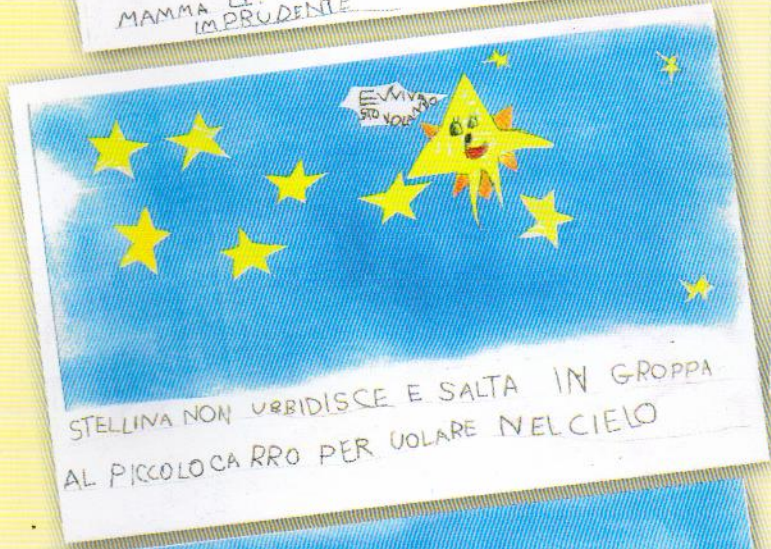 MAMMA
IMPRUDENTE
EVVIVA
STO VOLANDO
STELLINA NON UBBIDISCE E SALTA IN GROPPA
AL PICCOLO CARRO PER VOLARE NEL CIELO